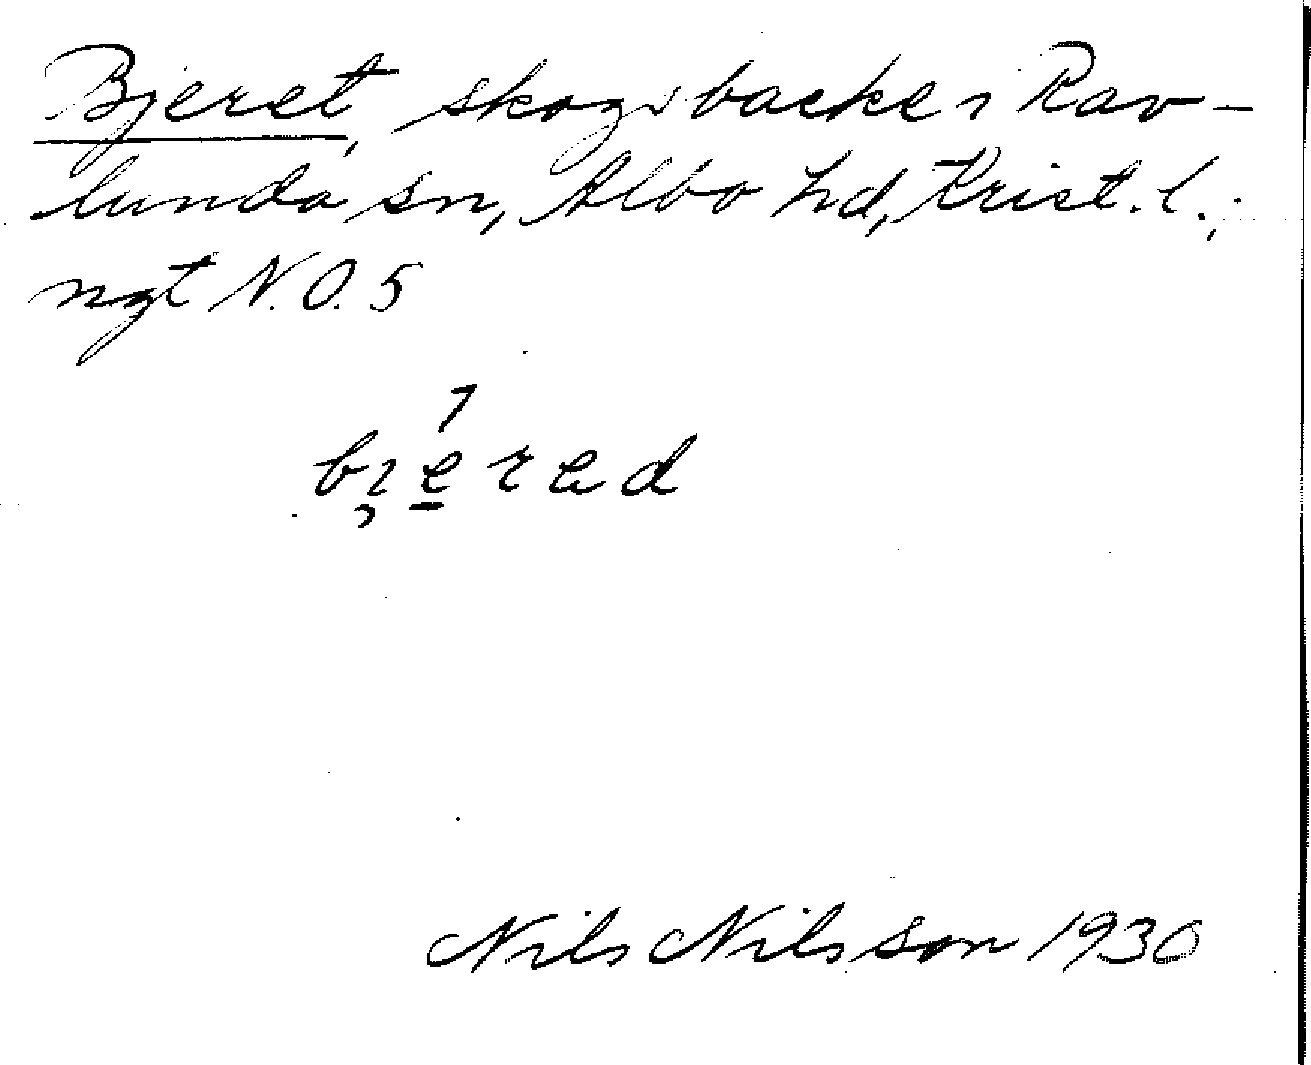 Bjeret, skogsbacke i Rav-
lunda sn, Albo hd, Krist. l.,
ngt N.O. 5
bi̯e̠red
Nils Nilsson 1930